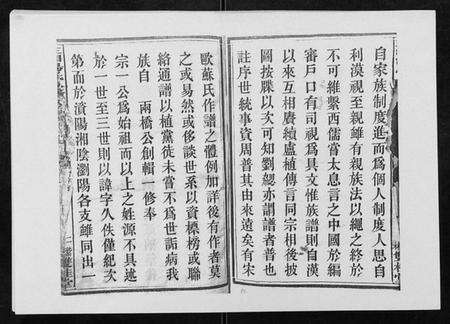 自家族制度進而爲個人制度人思自
利漠視至親雖有親族法以繩之終於
不可維繫西儒嘗太息言之中國於編
審戶口有司視爲具文惟族譜則自漢
以來互相賡續盧植傳言同宗相後披
圖按牒以次可知劉勰亦謂譜者普也
註序世統事資周普其由來遠矣有宋
歐蘇氏作譜之體例加詳後有作者莫
之或易然或侈談世系以資標榜或聯
絡通譜以植黨徒未嘗不爲世詬病我
族自 兩橋公創輯一修奉
宗一公爲始祖而以上之姓源不具述
於一世至三世則以諱字久佚僅紀次
第而於濆陽湘陰瀏陽各支雖同出一